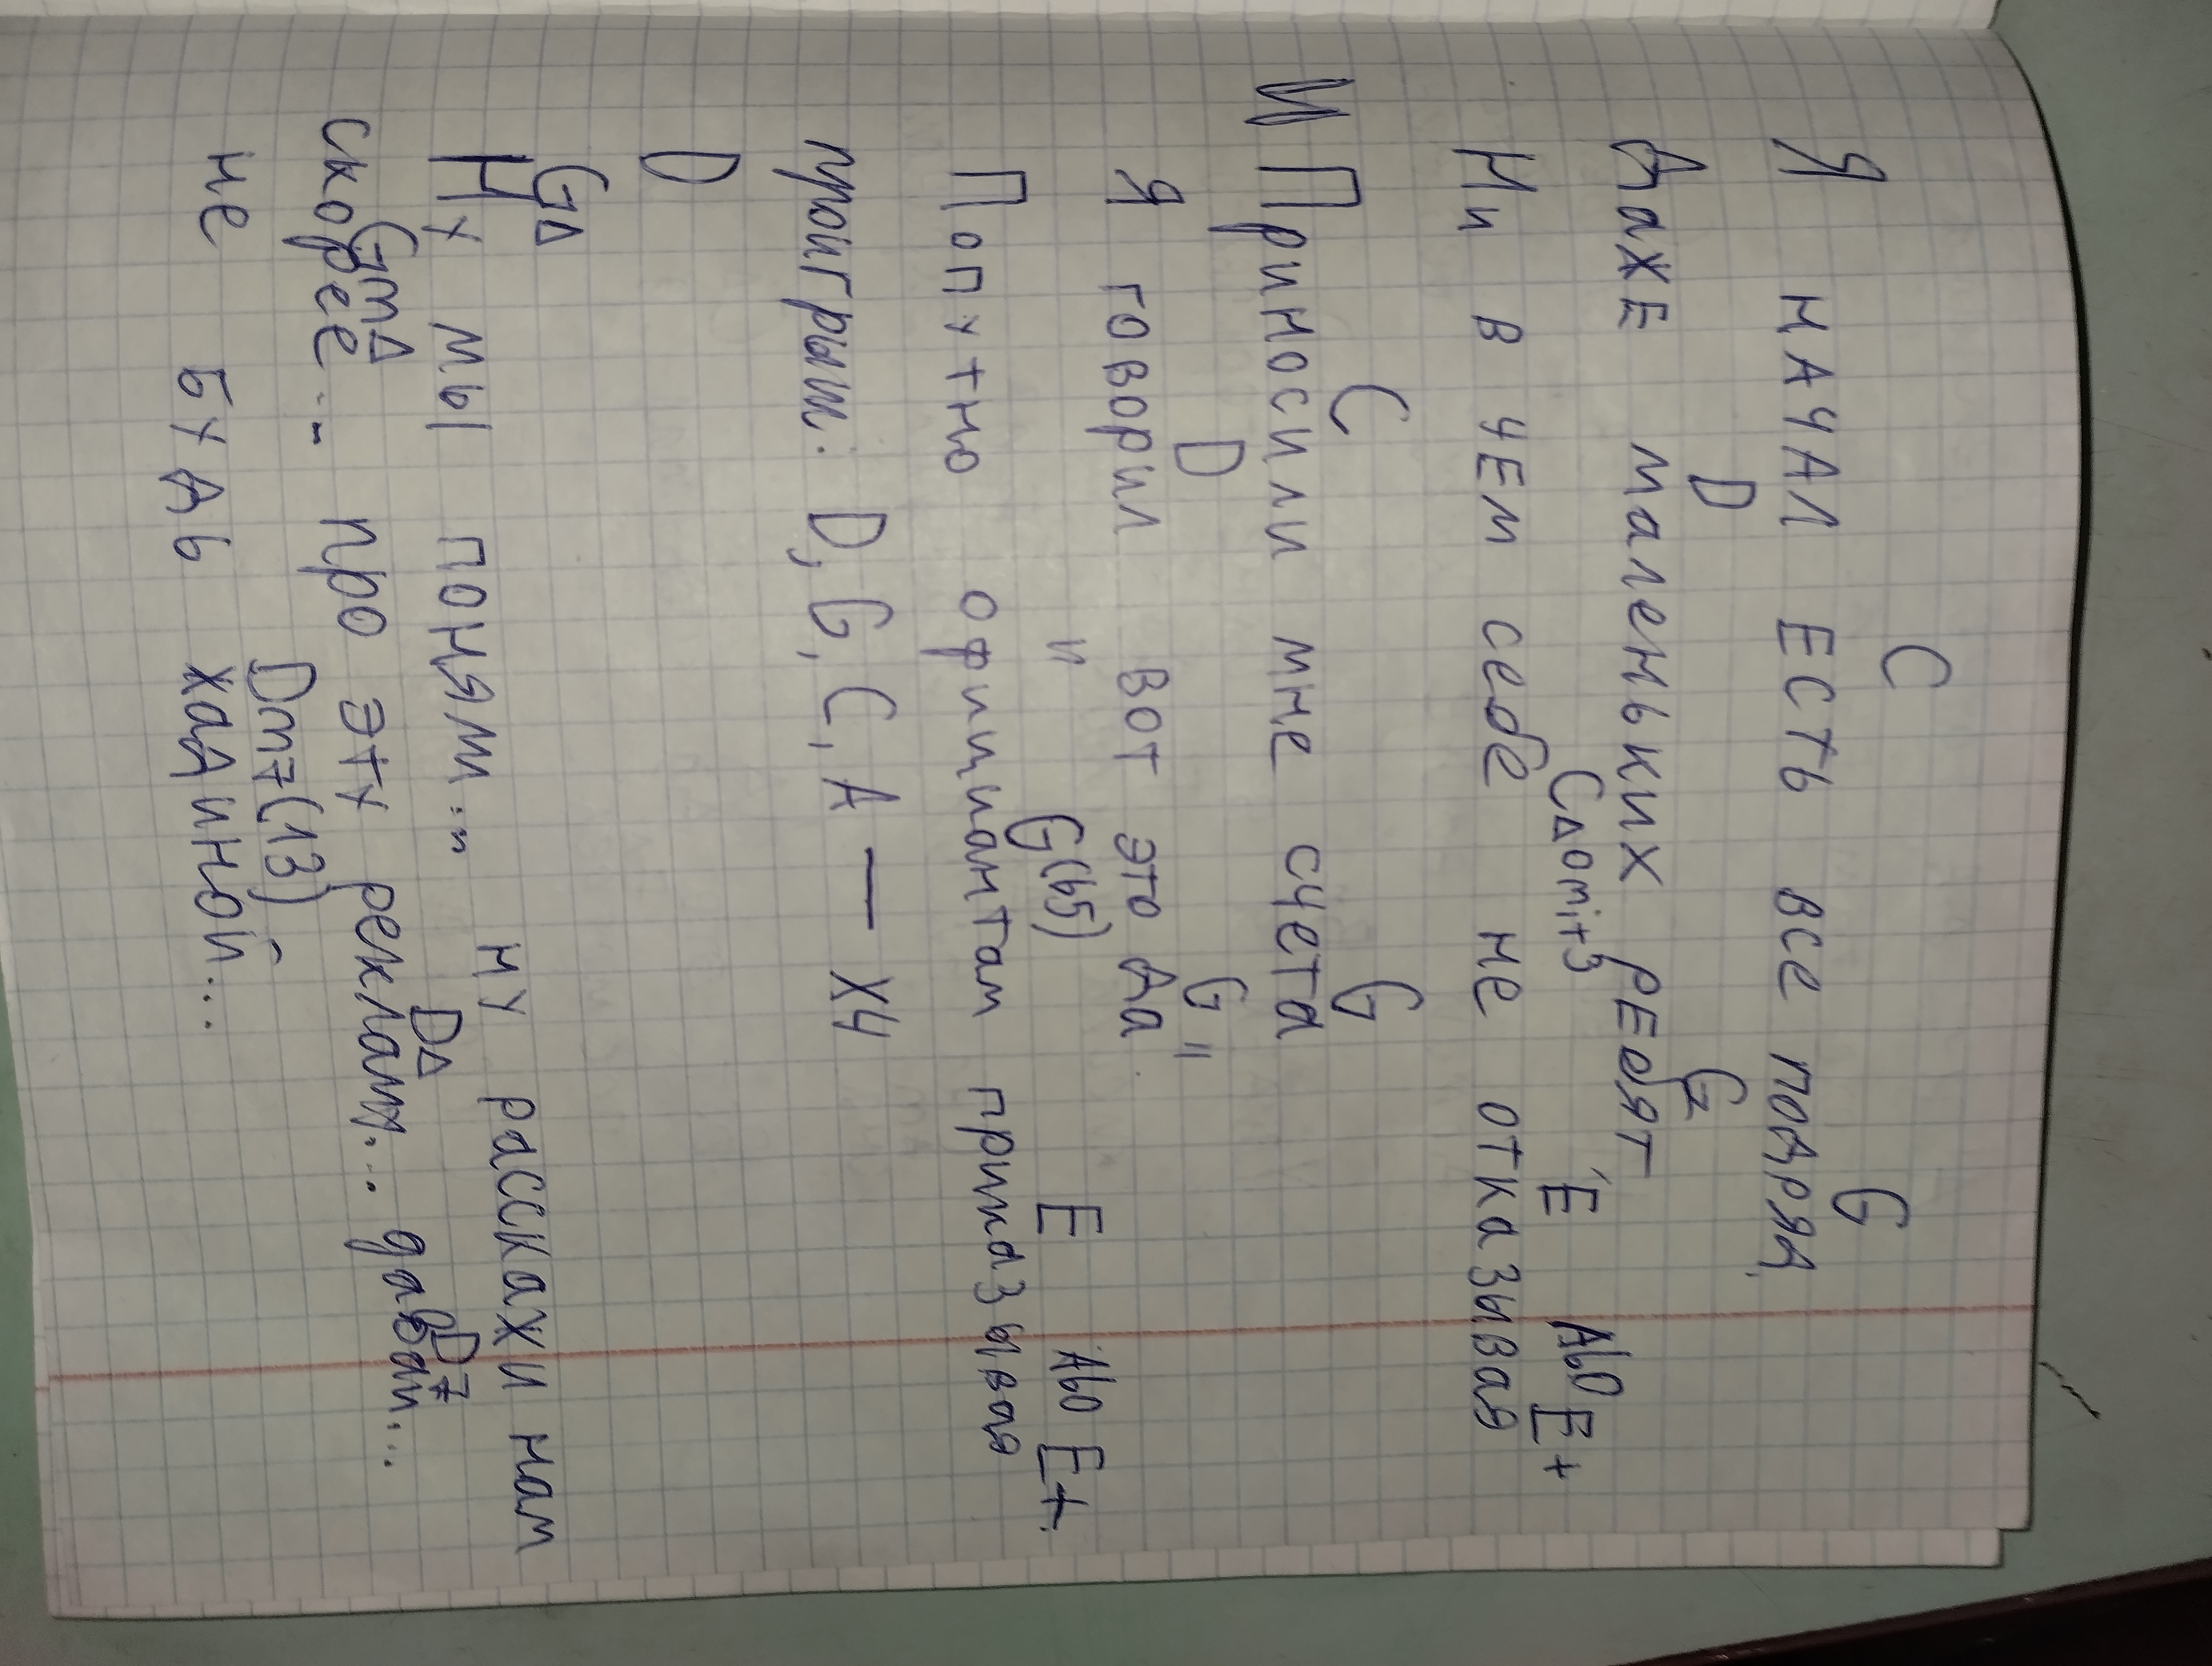 C G
Я НАЧАЛ ЕСТЬ все подряд,
D G
Даже маленьких ребят
C△omit3 E Ab0 E+
Ни в чем себе не отказывая
C G
И Приносили мне счета
D G "
Я говорил вот это да
и G(b5) E Ab0 E+
Попутно официантам приказывая
проигрыш: D, G, C, A — X4
D
G△
Ну мы поням... ну расскажи нам
Gm△ D△ D7
скорее... про эту реклам... давай...
Dm7(13)
не будь хадиной...